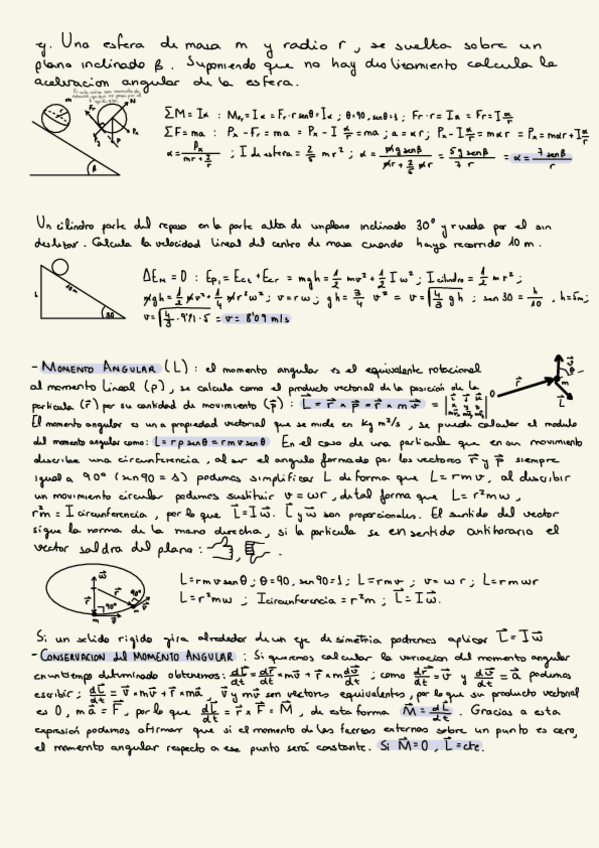 ej. Una esfera de masa m y radio r, se suelta sobre un
plano inclinado β. Suponiendo que no hay deslizamiento calcula la
aceleracion angular de la esfera.
m
Fr
N
Px
P
β
ΣM = Iα : M = Iα = Fr·r senθ = Iα ; θ=90, senθ=1 ; Fr·r = Iα = Fr = I α/r
ΣF = ma : Px - Fr = ma = Px - I α/r = ma ; a = αr ; Px - I α/r = mαr = Px = mαr + I α/r
α = Px / (mr + I/r) ; I de esfera = 2/5 mr² ; α = mg senβ / (mr + 2/5 mr) = 5g senβ / 7r = α = 7 senβ / r
Un cilindro parte del reposo en la parte alta de un plano inclinado 30º y rueda por el sin
deslizar. Calcula la velocidad lineal del centro de masa cuando haya recorrido 10 m.
10m
30
ΔEM = 0 : Ep1 = Ect + Ecr = mgh = 1/2 mv² + 1/2 Iω² ; I cilindro = 1/2 mr² ;
mgh = 1/2 mv² + 1/4 mr²ω² ; v = rω ; gh = 3/4 v² = v = √(4/3 gh) ; sen 30 = h/10 , h=5m;
v = √(4/3 · 9'81 · 5) = v = 8'09 m/s
- MOMENTO ANGULAR (L) : el momento angular es el equivalente rotacional
al momento lineal (p), se calcula como el producto vectorial de la posición de la
particula (r⃗) por su cantidad de movimiento (p⃗) : L⃗ = r⃗ × p⃗ = r⃗ × m v⃗
r⃗
O
m
L⃗
El momento angular es una propiedad vectorial que se mide en kg m²/s, se puede calcular el modulo
del momento angular como: L = r p senθ = r m v senθ En el caso de una particula que en su movimiento
describe una circunferencia, al ser el angulo formado por los vectores r⃗ y p⃗ siempre
igual a 90º (sen90 = 1) podemos simplificar L de forma que L = r m v, al describir
un movimiento circular podemos sustituir v = ωr, de tal forma que L = r² m ω,
r²m = I circunferencia, por lo que L⃗ = I ω⃗. L⃗ y ω⃗ son proporcionales. El sentido del vector
sigue la norma de la mano derecha, si la particula se en sentido antihorario el
vector saldra del plano :
ω⃗
r⃗
90º
m
v⃗
L = r m v senθ ; θ=90, sen90=1 ; L = r m v ; v = ω r ; L = r m ω r
L = r² m ω ; I circunferencia = r² m ; L⃗ = I ω⃗.
Si un solido rigido gira alrededor de un eje de simetria podremos aplicar L⃗ = I ω⃗
- CONSERVACION del MOMENTO ANGULAR : Si queremos calcular la variacion del momento angular
en un tiempo determinado obtenemos: dL⃗/dt = dr⃗/dt × m v⃗ + r⃗ × m dv⃗/dt ; como dr⃗/dt = v⃗ y dv⃗/dt = a⃗ podemos
escribir ; dL⃗/dt = v⃗ × m v⃗ + r⃗ × m a⃗, v⃗ y m v⃗ son vectores equivalentes, por lo que su producto vectorial
es 0, m a⃗ = F⃗, por lo que dL⃗/dt = r⃗ × F⃗ = M⃗, de esta forma M⃗ = dL⃗/dt . Gracias a esta
expresión podemos afirmar que si el momento de las fuerzas externas sobre un punto es cero,
el momento angular respecto a ese punto será constante. Si M⃗ = 0, L⃗ = cte.